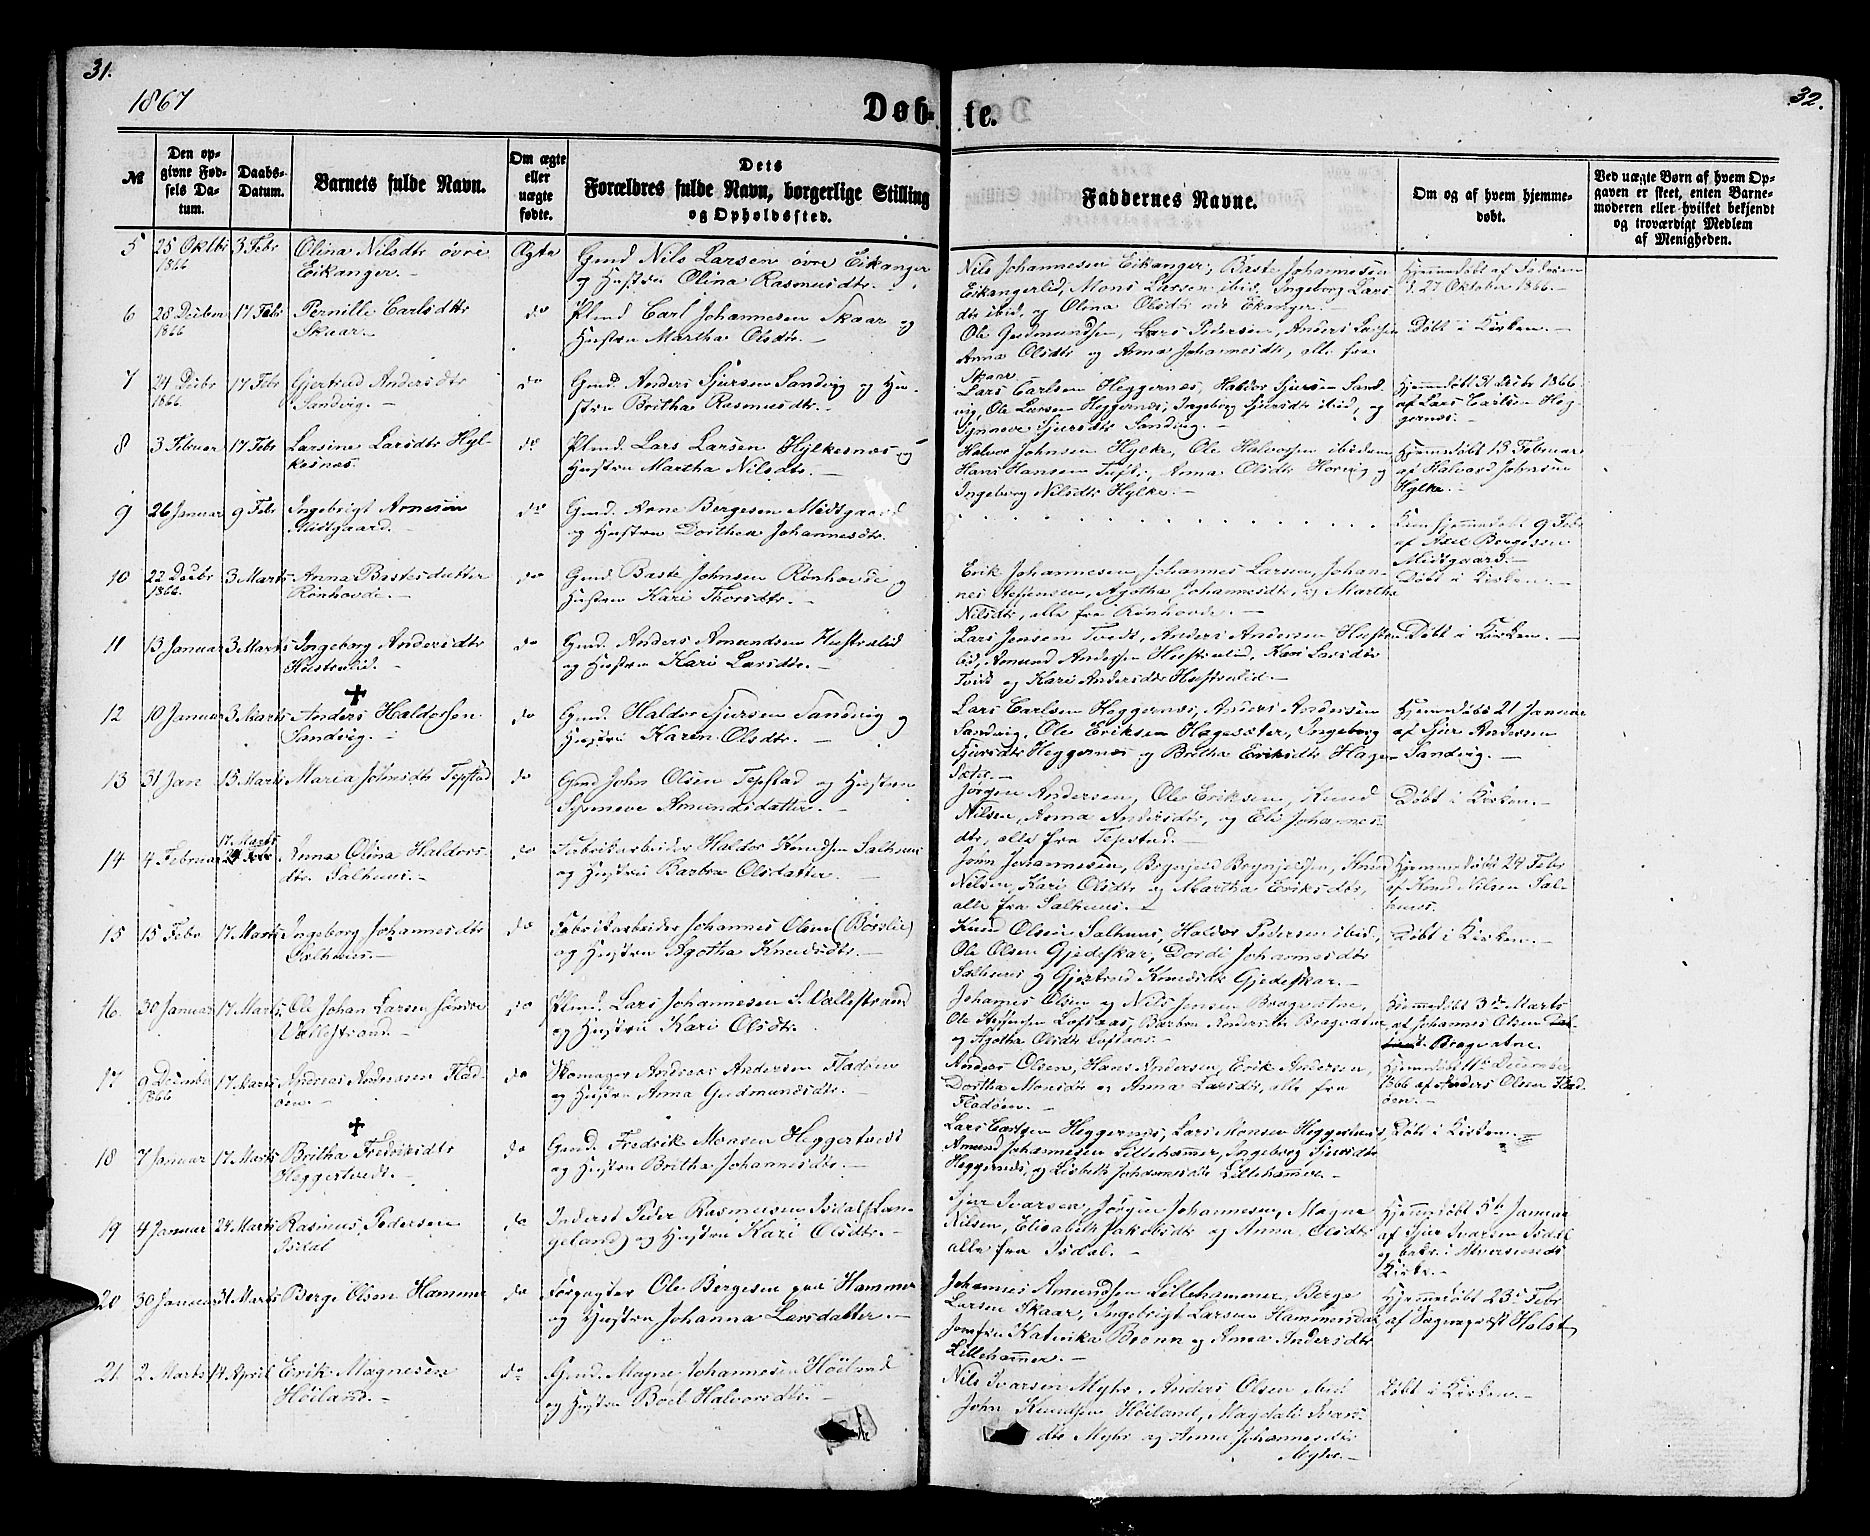 31.
32.
1867
Døb-
te.
№
Den op-
givne Fød-
sels Da-
tum.
Daabs-
Datum.
Barnets fulde Navn.
Om ægte
eller
uægte
fødte.
Dets
Forældres fulde Navn, borgerlige Stilling
og Opholdssted.
Faddernes Navne.
Om og af hvem hjemme-
døbt.
Ved uægte Børn af hvem Op-
gaven er skeet, enten Barne-
moderen eller hvilket bekjendt
og troværdigt Medlem
af Menigheden.
5
25 Oktbr
1866
3 Febr
Olina Nilsdtr øvre
Eikanger.-
Ægte
Gmd Nils Larsen øvre Eikanger
og Hustru Olina Rasmusdtr.-
Nils Johannesen Eikanger, Baste Johannesen
Eikangerlid, Mons Larsen ibid, Ingeborg Lars
dtr ibid, og Olina Olsdtr Eikanger.-
Hjemmedøbt af Faderen
d. 27 Oktober 1866.-
6
28 Decbr
1866
17 Febr
Pernille Carlsdtr
Skaar.-
do
Plmd Carl Johannesen Skaar og
Hustru Martha Olsdtr.-
Ole Gudmundsen, Lars Pedersen, Anders Larsen
Anna Olsdtr og Anna Johannesdtr, alle fra
Skaar.-
Døbt i Kirken.-
7
24 Decbr
1866.
17 Febr
Gjertrud Andersdtr
Sandvig.-
do
Gmd. Anders Sjursen Sandvig og Hu-
stru Britha Rasmusdtr.-
Lars Carlsen Heggernes, Haldor Sjursen Sand-
vig, Ole Larsen Heggernes, Ingeborg Sjursdtr ibid, og
Synneve Sjursdtr Sandvig.-
Hjemmedøbt 31 Decbr 1866
af Lars Carlsen Heg-
gernes.-
8
3 Februar
17 Febr
Larsine Larsdtr Hyl-
kesnes.
do
Plmd. Lars Larsen Hylkesnes og
Hustru Martha Nilsdtr.-
Halvor Johnsen Hylke, Ole Halvorsen ibidem,
Hans Hansen Tuft, Anna Olsdtr Hornvig og
Ingeborg Nilsdtr Hylke.-
Hjemmedøbt 13 Februar
af Halvard Johnsen
Hylke.-
9
26 Januar
9 Febr
Ingebrigt Arnesen
Midtgaard.-
do
Gmd. Arne Bergesen Midtgaard
og Hustru Dorthea Johannesdtr.
Kun hjemmedøbt 9 Febr
af Axel Bergesen
Midtgaard.-
10
22 Decbr
1866.
3 Marts
Anna Bastesdatter
Rønhovde.-
do
Gmd. Baste Johnsen Rønhovde og
Hustru Kari Thorsdtr.-
Erik Johannesen, Johannes Larsen, Johan-
nes Steffensen, Agotha Johannesdtr, og Martha
Nilsdtr, alle fra Rønhovde.-
Døbt i Kirken.-
11
13 Januar
3 Marts
Ingeborg Andersdtr
Hustvelid.-
do
Gmd. Anders Amundsen Hustvelid
og Hustru Kari Larsdtr.-
Lars Jensen Tveit, Anders Andersen Hustve-
lid, Amund Andersen Hustvelid, Kari Larsdtr
Tveit og Kari Andersdtr Hustvelid.-
Døbt i Kirken.-
12
10 Januar
3 Marts
Anders Haldorsen
Sandvig.-
do
Gmd. Haldor Sjursen Sandvig og
Hustru Karen Olsdtr.-
Lars Carlsen Heggernes, Anders Andersen
Sandvig, Ole Eriksen Hagesæter, Ingeborg
Sjursdtr Heggernes og Britha Eriksdtr Hage-
sæter.-
Hjemmedøbt 21 Januar
af Sjur Andersen
Sandvig.-
13
31 Jan
13 Marts
Maria Johnsdtr Tepstad
do
Gmd John Olsen Tepstad og Hustru
Synneve Amundsdatter.-
Jørgen Andersen, Ole Eriksen, Knud
Nilsen, Anna Andersdtr, og Eli Johannes-
dtr, alle fra Tepstad.-
Døbt i Kirken.-
14
4 Februar
17 Marts
24 Febr
Anna Olina Haldors-
dtr. Salhuus.-
do
Fabrikarbeider Haldor Knudsen Salhuus
og Hustru Barbra Olsdatter.-
John Johannesen, Brynjeld Brynjeldsen, Knud
Nilsen, Kari Olsdtr og Martha Eriksdtr,
alle fra Salhuus.-
Hjemmedøbt 24 Febr
af Knud Nilsen Sal-
huus.
15
15 Febr
17 Marts
Ingeborg Johannesdtr
Salhuus.-
do
Fabrikarbeider Johannes Olsen (Børslie)
og Hustru Agotha Knudsdtr.-
Knud Olsen Salhuus, Haldor Pedersen ibid,
Ole Olsen Gjedeskar, Dordi Johannesdtr
Salhuus og Gjertrud Knudsdtr Gjedeskar.-
Døbt i Kirken.-
16
30 Januar
17 Marts
Ole Johan Larsen søndre
Vallestrand.-
do
Plmd. Lars Johannesen S. Vallestrand
og Hustru Kari Olsdtr.
Johannes Olsen og Nils Jensen Bragvatne,
Ole Lofsaas, Barbra Andersdtr Bragvatne
og Agotha Olsdtr Lofsaas.-
Hjemmedøbt 3de Marts
af Johannes Olsen
Bragvatne.
17
9 Decembr
1866
17. Marts
Andreas Andersen Flad-
øen.-
do
Skomager Andreas Andersen Fladøen
og Hustru Anna Gudmundsdtr.-
Anders Olsen, Hans Andersen, Erik Andersen,
Dorthea Monsdtr og Anna Larsdtr, alle fra
Fladøen.-
Hjemmedøbt December
1866 af Anders Olsen Flad
øen.-
18
7 Januar
17 Marts
Britha Fredriksdtr
Heggertveit.-
do
Gmd. Fredrik Monsen Heggertveit
og Hustru Britha Johannesdtr.-
Lars Carlsen Heggernes, Lars Monsen Heggertveit,
Amund Johannesen Lillehammer, Ingeborg Sjursdtr
Heggernes, og Lisbeth Johannesdtr Lillehammer.-
Døbt i Kirken.-
19
4 Januar
24 Marts
Rasmus Pedersen
Isdal
do
Inderst Peder Rasmussen Isdal (Lan-
geland) og Hustru Kari Olsdtr.-
Sjur Ivarsen, Jørgen Johannesen, Magne
Nilsen, Elisabeth Jakobsdtr og Anna Olsdtr
alle fra Isdal.-
Hjemmedøbt 5te Januar
af Sjur Ivarsen Isdal
og bekr. i Alversunds
Kirke.-
20
30 Januar
31 Marts
Berge Olsen Hammer
do
Forpagter Ole Bergesen paa Hammer
og Hustru Johanna Larsdatter.-
Johannes Amundsen Lillehammer, Berge
Larsen Skaar, Ingebrigt Larsen Hammersdal,
Jomfru Katinka Bronn og Anna Andersdtr
Lillehammer.-
Hjemmedøbt 23. Febr
af Sognepræst Holst.
21
2 Marts
14 April
Erik Magnesen
Høiland.-
do
Gmd. Magne Johannesen Høiland
og Hustru Boel Halvorsdtr.-
Nils Ivarsen Myhr, Anders Olsen ibid
John Knudsen Høiland, Magdali Ivars-
dtr Myhr og Anna Johannesdtr
Myhr.-
Døbt i Kirken.-